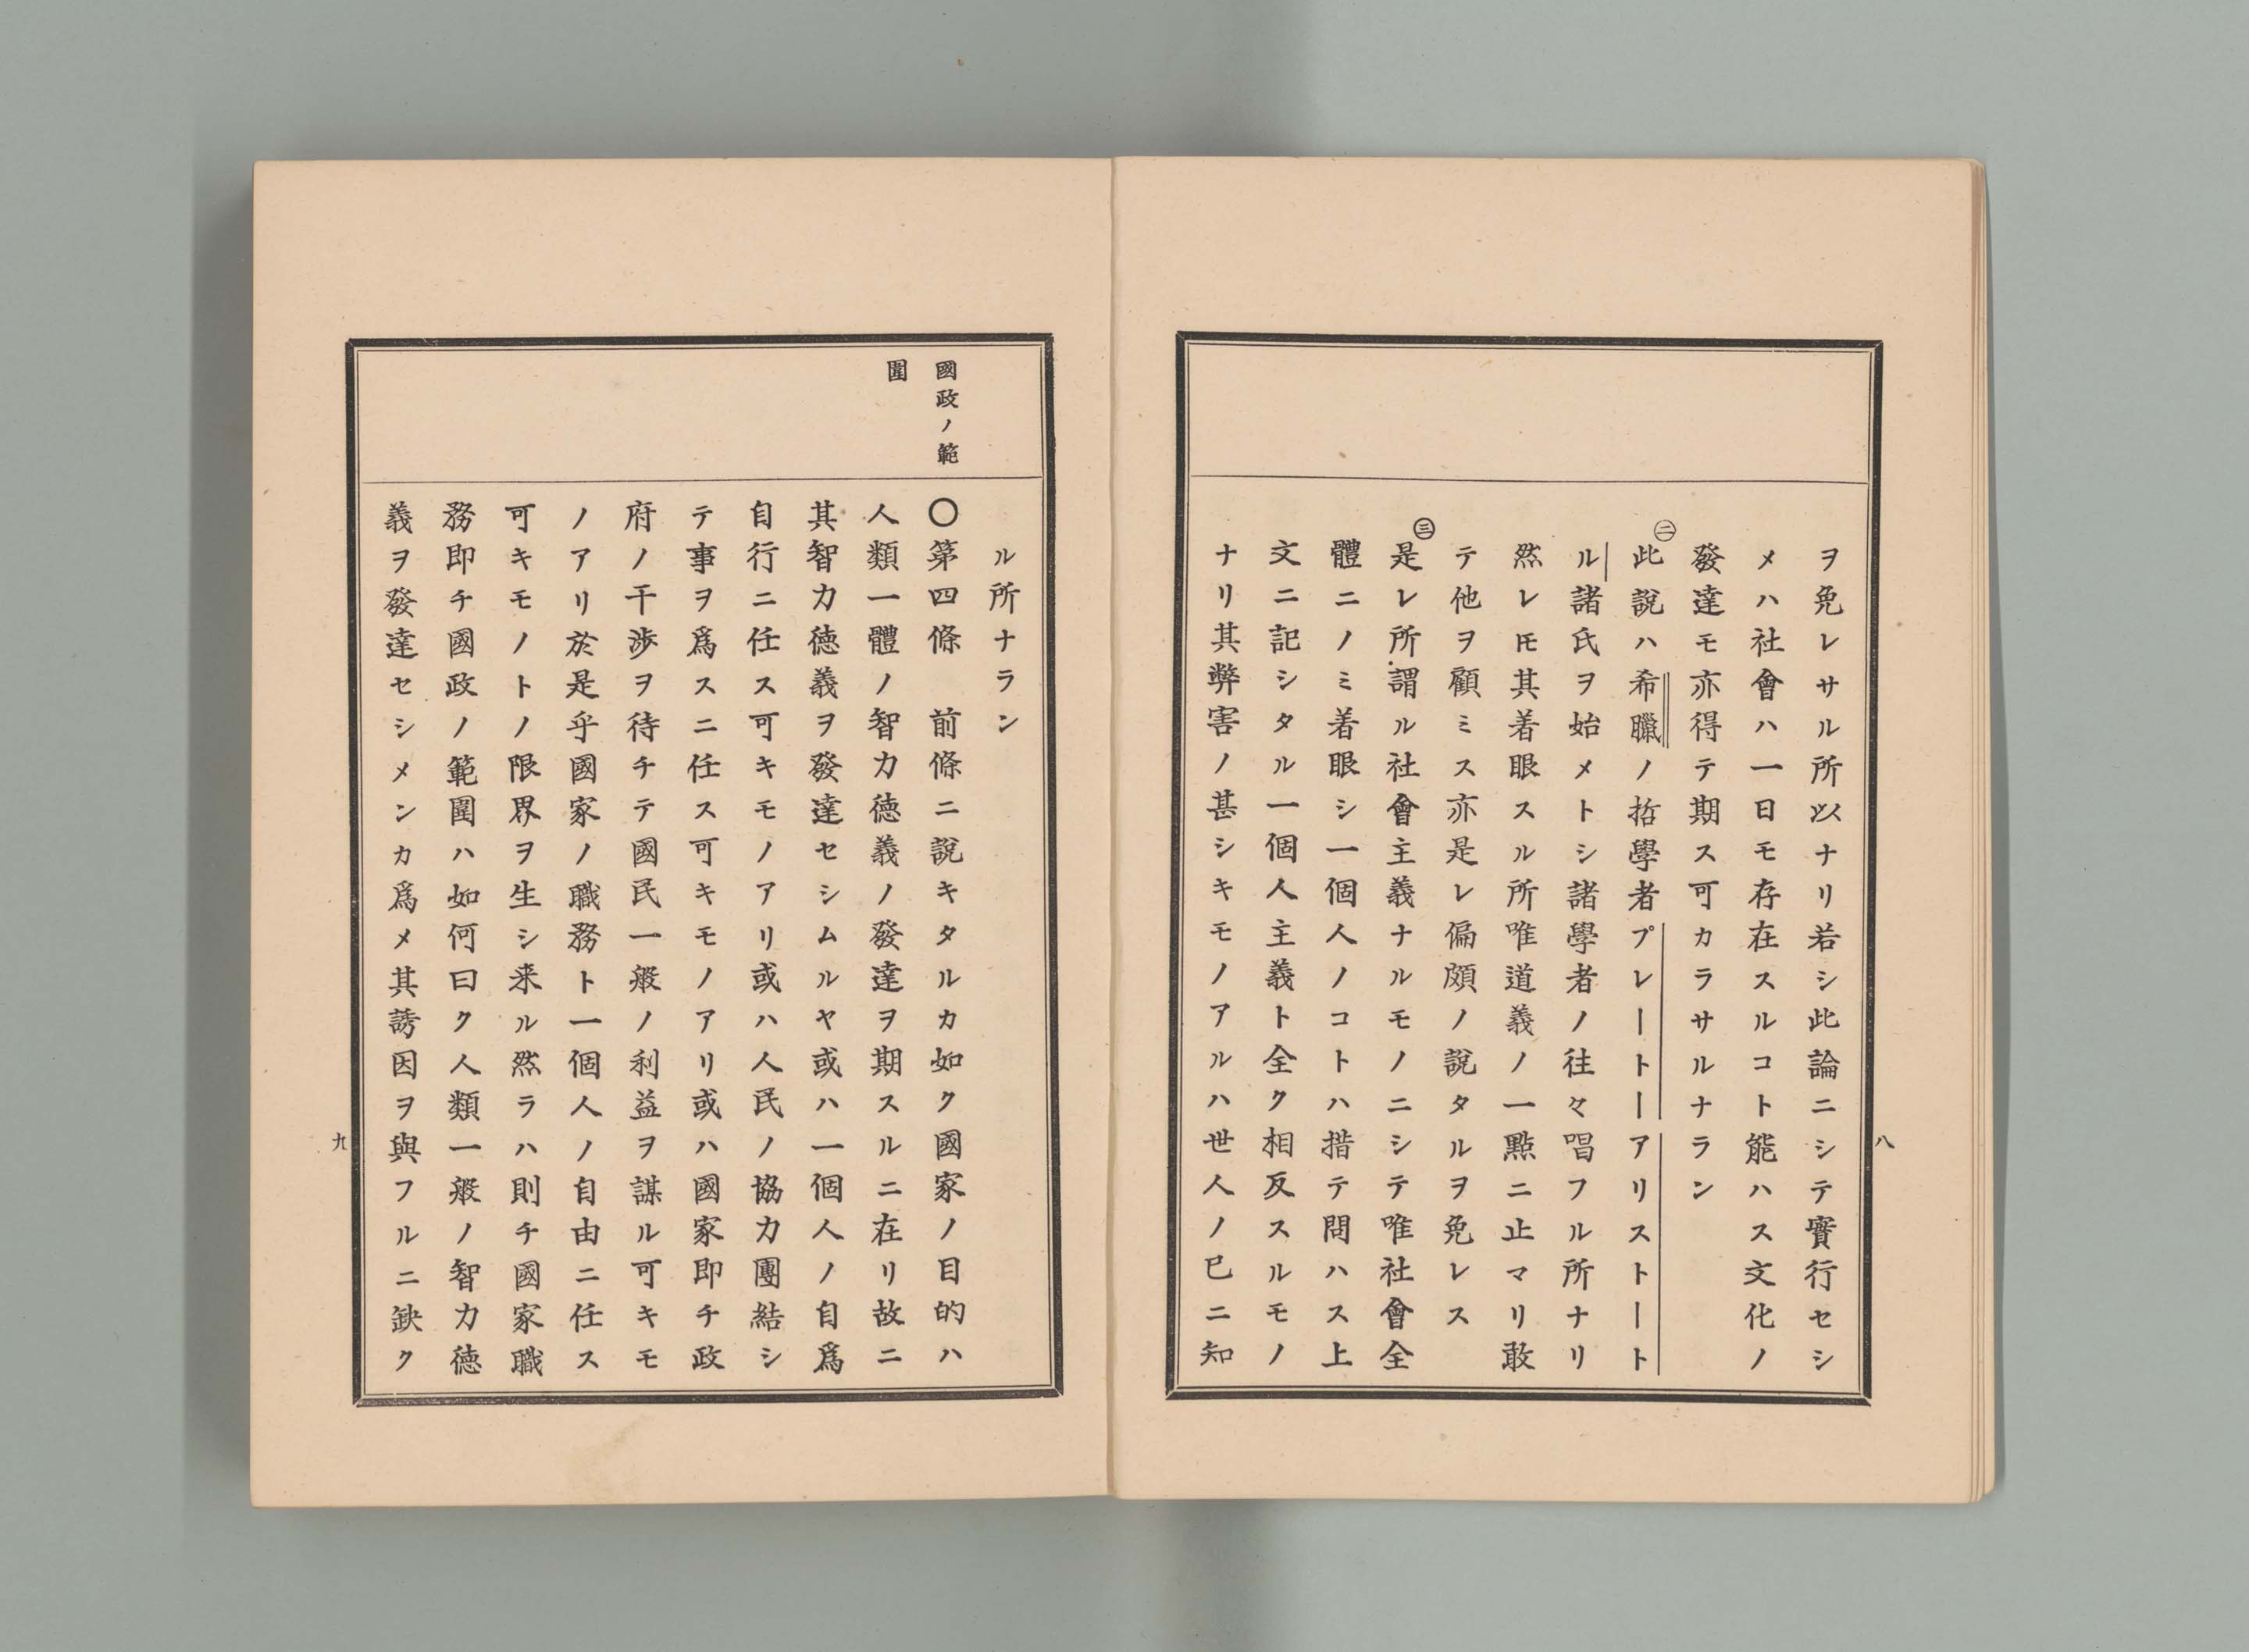 ヲ免レサル所以ナリ若シ此論ニシテ實行セシ
メハ社會ハ一日モ存在スルコト能ハス文化ノ
發達モ亦得テ期ス可カラサルナラン
㊁
此說ハ希臘ノ哲學者プレートーアリストート
ル諸氏ヲ始メトシ諸學者ノ往々唱フル所ナリ
然レ𪜈其着眼スル所唯道義ノ一點ニ止マリ敢
テ他ヲ顧ミス亦是レ偏頗ノ說タルヲ免レス
㊂
是レ所謂ル社會主義ナルモノニシテ唯社會全
體ニノミ着眼シ一個人ノコトハ措テ問ハス上
文ニ記シタル一個人主義ト全ク相反スルモノ
ナリ其弊害ノ甚シキモノアルハ世人ノ已ニ知
八
ル所ナラン
國政ノ範
圍
〇第四條 前條ニ說キタルカ如ク國家ノ目的ハ
人類一體ノ智力德義ノ發達ヲ期スルニ在リ故ニ
其智力德義ヲ發達セシムルヤ或ハ一個人ノ自爲
自行ニ任ス可キモノアリ或ハ人民ノ協力團結シ
テ事ヲ爲スニ任ス可キモノアリ或ハ國家即チ政
府ノ干渉ヲ待チテ國民一般ノ利益ヲ謀ル可キモ
ノアリ於是乎國家ノ職務ト一個人ノ自由ニ任ス
可キモノトノ限界ヲ生シ来ル然ラハ則チ國家職
務即チ國政ノ範圍ハ如何曰ク人類一般ノ智力德
義ヲ發達セシメンカ爲メ其誘因ヲ與フルニ缺ク
九